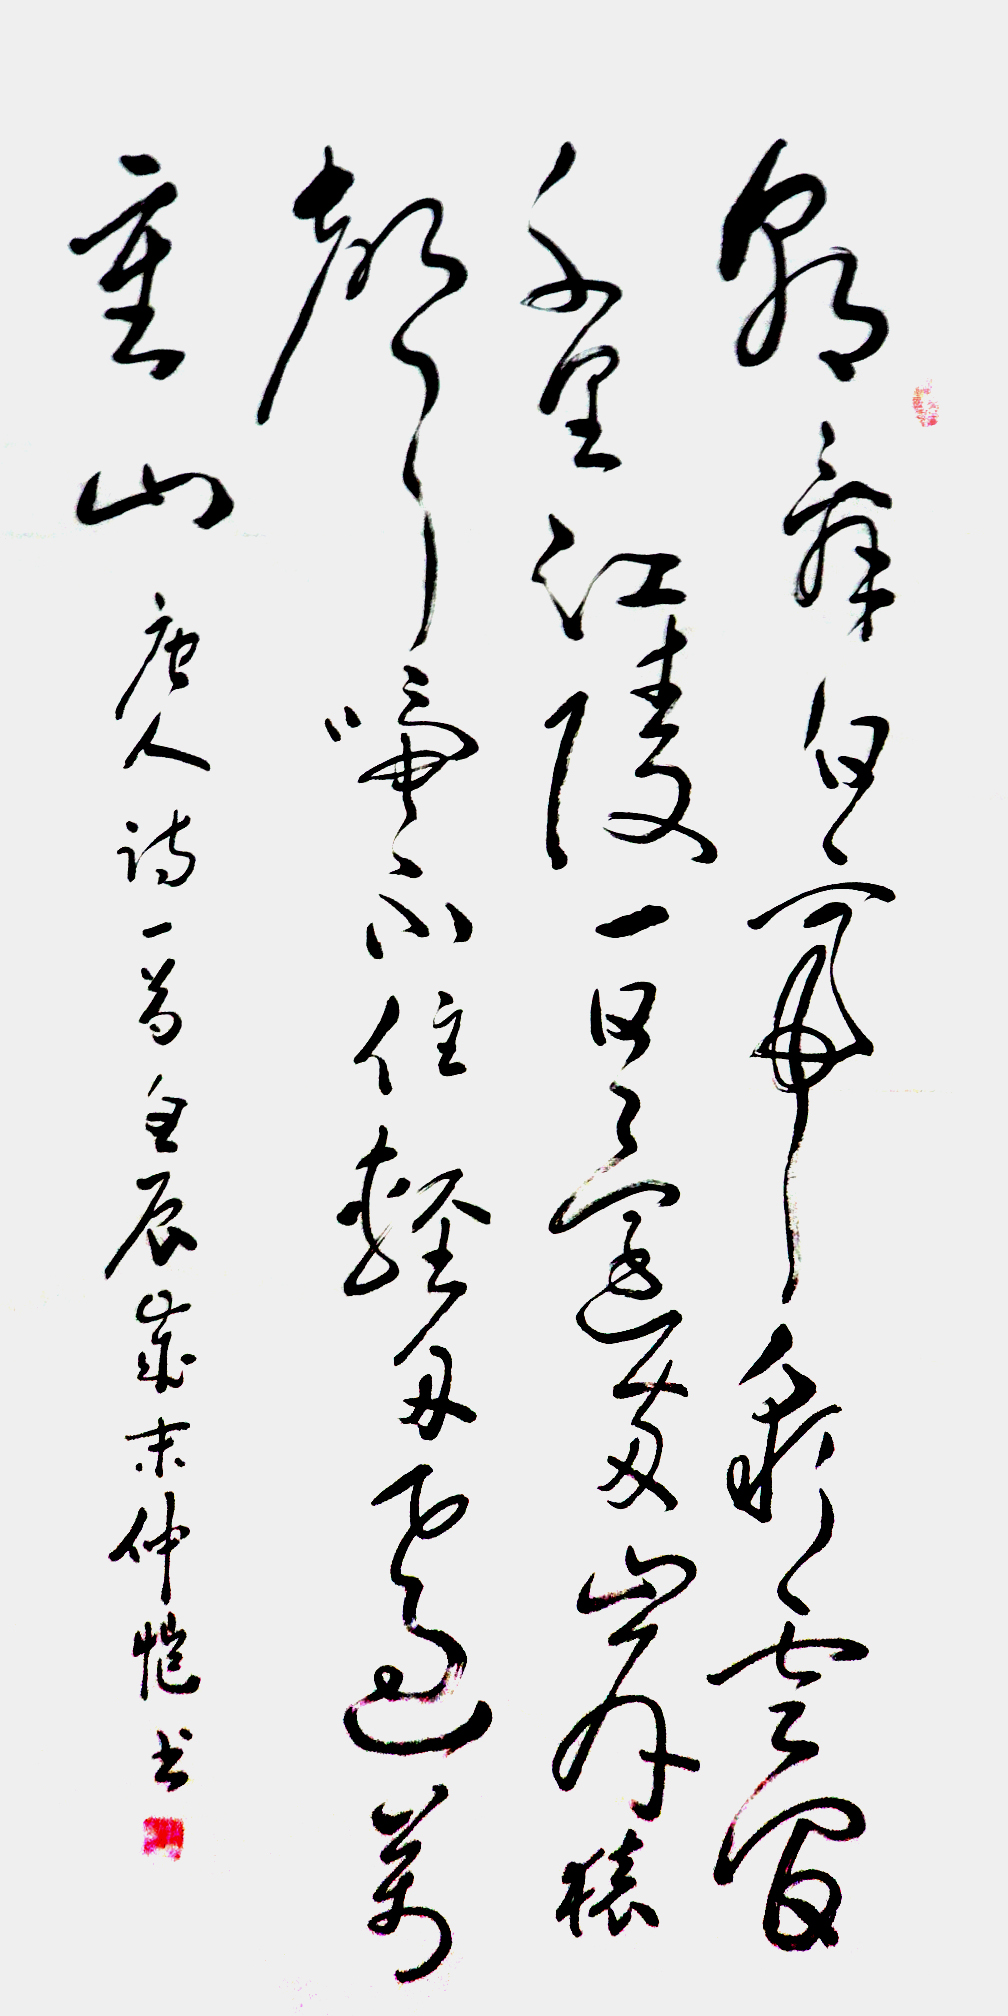 朝辞白帝彩云间
千里江陵一日还两岸猿
声啼不住轻舟过万
重山 唐人诗一首 壬辰岁末仲恺书